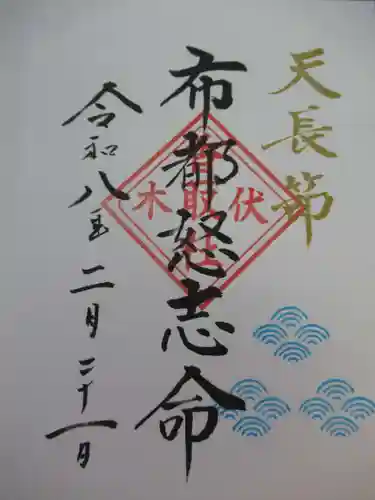 天長節
布都怒志命
伏木
香取社
令和八年二月二十一日